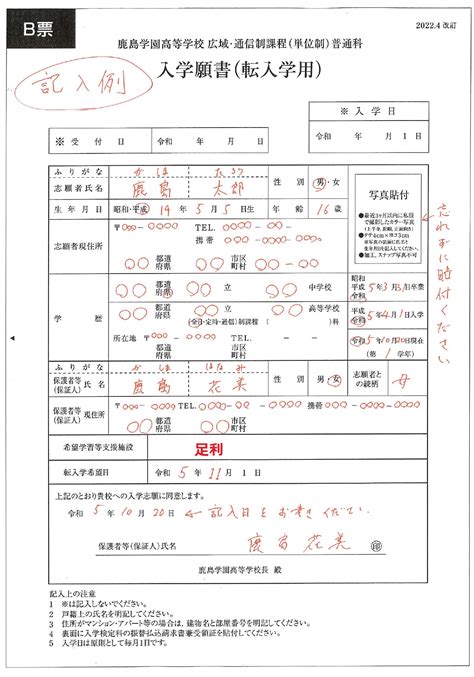 B票
2022.4 改訂
鹿島学園高等学校 広域・通信制課程(単位制)普通科
記入例
入学願書(転入学用)
※ 入 学 日
※ 受 付 日 令和 年 月 日
令和 年 月 1 日
ふりがな かしま たろう
志願者氏名 鹿島 太郎 性別 男・女
写真貼付
生年月日 昭和・平成 19年 5月 5日生 年齢 16歳
●最近3ヶ月以内に私服で撮影したカラー写真(上半身、脱帽、正面向き)
●タテ4cm×ヨコ3cm
※写真の裏面に氏名と生年月日を記入してください。
●加工、スナップ写真不可
忘れずに貼付ください
志願者現住所 〒○○○-○○○○ TEL. ○○○-○○○-○○○○
携帯 ○○○-○○○○-○○○○
○○ 都道府県 ○○ 市区町村
学歴
○○ 都道府県 ○○ 立 ○○ 中学校
昭和 平成 令和 5年3月31日卒業
○○ 都道府県 ○○ 立 ○○ 高等学校
(全日・定時・通信)制課程 (○○)科
平成 令和 5年4月1日入学
所在地 ○○ 都道府県 ○○ 市区町村
令和 5年10月20日現在
(第 1 学年)
ふりがな かしま はなみ
保護者等(保証人)氏名 鹿島 花美 性別 男・女 志願者との続柄 母
保護者等(保証人)現住所 〒○○○-○○○○ TEL. ○○○-○○○-○○○○ 携帯 ○○○-○○○○-○○○○
○○ 都道府県 ○○ 市区町村
希望学習等支援施設 足利
転入学希望日 令和 5年 11月 1日
上記のとおり貴校への入学志願に同意します。
令和 5年 10月 20日 ← 記入日をお書きください。
保護者等(保証人)氏名 鹿島 花美 印
鹿島学園高等学校長 殿
記入上の注意
1 ※は記入しないでください。
2 戸籍上の氏名を明記してください。
3 住所がマンション・アパート等の場合は、建物名と部屋番号を明記してください。
4 裏面に入学検定料の振替払込請求書兼受領証を貼付してください。
5 入学日は原則として毎月1日です。